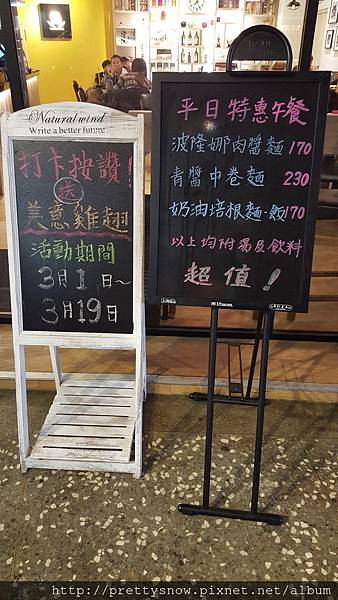 Natural wind
Write a better future
打卡按讚!
送
美意雞翅
活動期間
3月1日~
3月19日
平日特惠午餐
波隆娜肉醬麵 170
青醬中卷麵 230
奶油培根麵.飯170
以上均附湯及飲料
超值!
http://prettysnow.pixnet.net/album